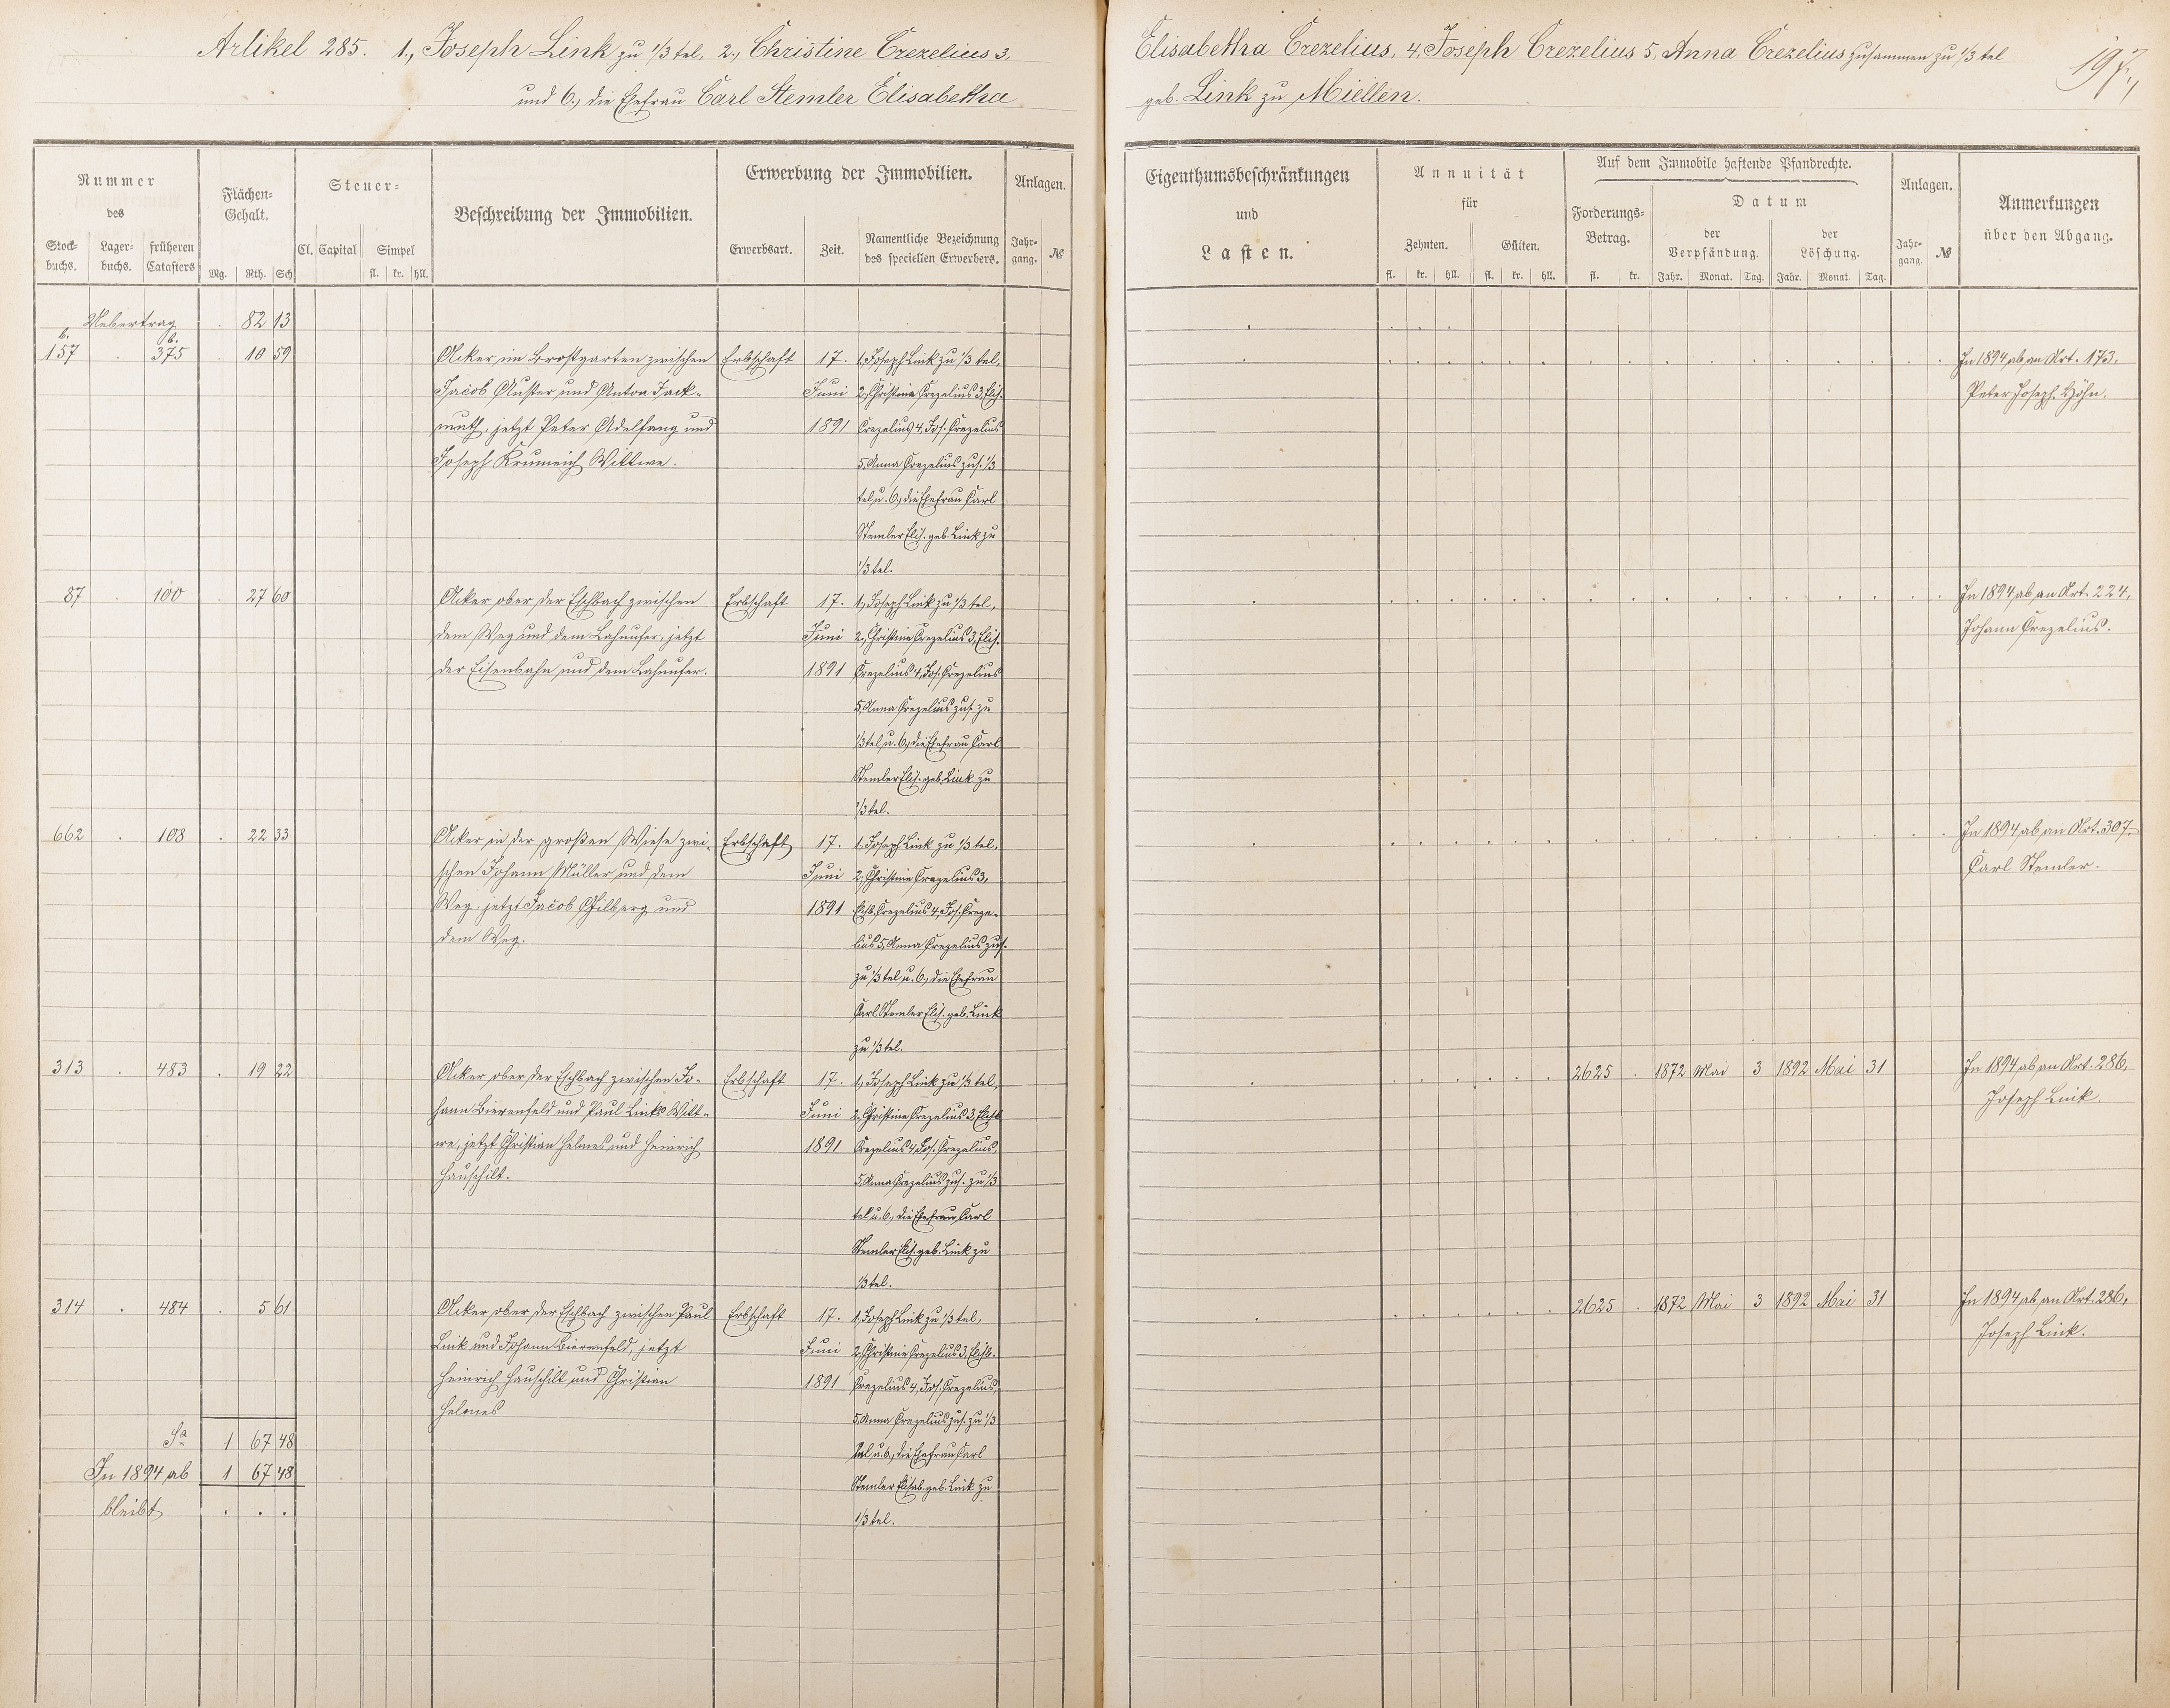 Artikel 285. 1., Joseph Link zu 1/3 tel, 2., Christine Crezelius 3,
und 6., die Ehefrau Carl Stemler Elisabetha
Elisabetha Crezelius, 4, Joseph Crezelius 5, Anna Crezelius zusammen zu 1/3 tel
geb. Link zu Miellen.
197,
Nummer
des
Stock-
buchs.
Lager-
buchs.
früheren
Catasters
Flächen-
Gehalt.
Mg.
Rth.
Sch
Steuer-
Cl.
Capital
Simpel
fl.
kr.
hll.
Beschreibung der Immobilien.
Erwerbung der Immobilien.
Erwerbsart.
Zeit.
Namentliche Bezeichnung
des speciellen Erwerbers.
Anlagen.
Jahr-
gang.
№
Eigenthumsbeschränkungen
und
Lasten.
Annuität
für
Zehnten.
Gülten.
fl. kr. hll. fl. kr. hll.
Auf dem Immobile haftende Pfandrechte.
Forderungs-
Betrag.
fl. kr.
Datum
der
Verpfändung.
der
Löschung.
Jahr. Monat. Tag. Jahr. Monat. Tag.
Anlagen.
Jahr-
gang.
№
Anmerkungen
über den Abgang.
Uebertrag . 82 13
b. b.
157 . 375 . 10 59
Acker im Brostgarten zwischen
Jacob Auster und Anton Jack-
muth, jetzt Peter Adelfang und
Joseph Krumeich Wittwe.
Erbschaft
17.
Juni
1891
1, Joseph Link zu 1/3 tel,
2, Christine Crezelius 3, Elis.
Crezelius 4, Jos. Crezelius
5, Anna Crezelius zus. 1/3
tel u. 6., die Ehefrau Carl
Stemler Elis. geb. Link zu
1/3 tel.
In 1894 ab an Art. 173,
Peter Joseph Höhn.
87 . 100 . 27 60
Acker ober der Eschbach zwischen
dem Weg und dem Lahnufer, jetzt
der Eisenbahn und dem Lahnufer.
Erbschaft
17.
Juni
1891
1, Joseph Link zu 1/3 tel,
2, Christine Crezelius 3, Elis.
Crezelius 4, Jos. Crezelius
5, Anna Crezelius zus. zu
1/3 tel u. 6, die Ehefrau Carl
Stemler Elis. geb. Link zu
1/3 tel.
In 1894 ab an Art. 224,
Johann Crezelius.
662 . 108 . 22 33
Acker in der großen Wiese zwi-
schen Johann Müller und dem
Weg, jetzt Jacob Gilberg und
dem Weg.
Erbschaft
17.
Juni
1891
1. Joseph Link zu 1/3 tel,
2, Christine Crezelius 3,
Elis. Crezelius 4, Jos. Creze-
lius 5, Anna Crezelius zus.
zu 1/3 tel u. 6., die Ehefrau
Carl Stemler Elis. geb. Link
zu 1/3 tel.
In 1894 ab an Art. 307.
Carl Stemler.
313 . 483 . 19 22
Acker ober der Eschbach zwischen Jo-
hann Bierenfeld und Paul Links Witt-
we, jetzt Christian Helmes und Heinrich
Hauschilt.
Erbschaft
17.
Juni
1891
1, Joseph Link zu 1/3 tel,
2, Christine Crezelius 3, Elisb.
Crezelius 4, Jos. Crezelius,
5, Anna Crezelius zus. zu 1/3
tel u. 6., die Ehefrau Carl
Stemler Elis. geb. Link zu
1/3 tel.
2625 . 1872 Mai 3 1892 Mai 31
In 1894 ab an Art. 286,
Joseph Link.
314 . 484 . 5 61
Acker ober der Eschbach zwischen Paul
Link und Johann Bierenfeld, jetzt
Heinrich Hauschilt und Christian
Helmes
Erbschaft
17.
Juni
1891
1, Joseph Link zu 1/3 tel,
2, Christine Crezelius 3, Elisb.
Crezelius 4, Jos. Crezelius,
5, Anna Crezelius zus. zu 1/3
tel u. 6., die Ehefrau Carl
Stemler Elisab. geb. Link zu
1/3 tel.
2625 . 1872 Mai 3 1892 Mai 31
In 1894 ab an Art. 286,
Joseph Link.
Sa 1 67 48
In 1894 ab 1 67 48
bleibt . . .